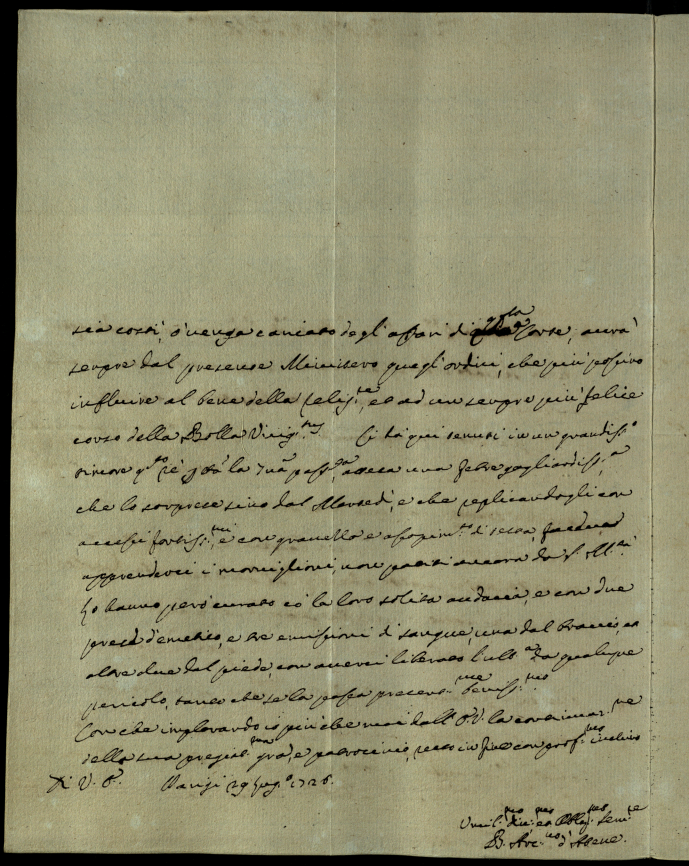 sia cossì, ò venga caricato degl'affari di questa Corte, avrà
sempre dal presente Ministero quegl'ordini, che più possino
influire al bene della relig.ne, ed ad un sempre più felice
corso della Bolla Unig.tus Ci hà qui tenuti in un grandiss.o
timore q.to rè p tta la 7na pass.ta, attesa una febre gagliardiss.a,
che lo sorprese sino dal Martedì, e che replicandogli con
accessi fortiss.mi, e con gravezza e assopim.to di testa
apprenderci i morviglioni, non patiti ancora da S. M.tà
Lo hanno però curato cō la loro solita audacia, e con due
prese d'emetico, e tre emissioni di sangue, una dal braccio, ed
altre due dal piede, con averci liberato l'ult.a da qualunque
pericolo, tanto che se la passa presentem.te beniss.mo
Con che implorando io più che mai dall'E.V. la continuaz.ne
della sua pregiat.ma grā, e patrocinio, resto in fine con prof.mo inchino
Di V. E. Parigi 29 lug.o 1726.
Umil.mo div.mo ed Obblig.mo Serv.re
B. Arc.vo d'Atene.